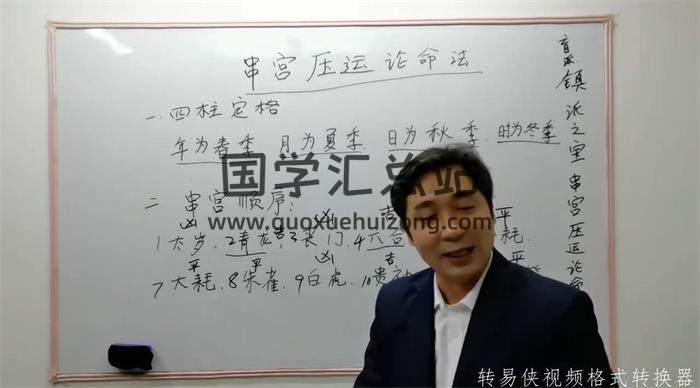 串宫压运论命法
一、四柱定格
年为春季 月为夏季 日为秋季 时为冬季
二 串宫顺序:
凶 吉 凶 吉 平
1太岁 2青龙 3丧门 4六合 耗
平 平 凶 吉
7大耗 8朱雀 9白虎 10贵神
镇派之宝 串宫压运论命
国学汇总站
www.guoxuehuizong.com
转易侠视频格式转换器